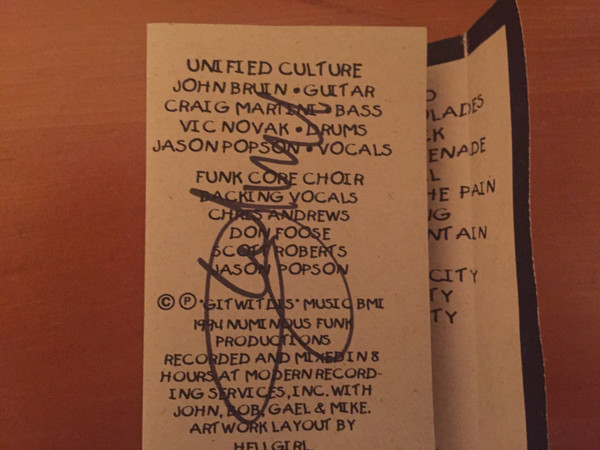 UNIFIED CULTURE
JOHN BRUIN • GUITAR
CRAIG MARTINI • BASS
VIC NOVAK • DRUMS
JASON POPSON • VOCALS
FUNK CORE CHOIR
BACKING VOCALS
CHRIS ANDREWS
DON FOOSE
SCOTT ROBERTS
JASON POPSON
© ℗ "GITWITDIS" MUSIC BMI
1994 NUMINOUS FUNK
PRODUCTIONS
RECORDED AND MIXED IN 8
HOURS AT MODERN RECORD-
ING SERVICES, INC. WITH
JOHN, BOB, GAEL & MIKE.
ARTWORK LAYOUT BY
HELLGIRL.
LADES
K
ENADE
L
HE PAIN
NG
NTAIN
CITY
TY
TY